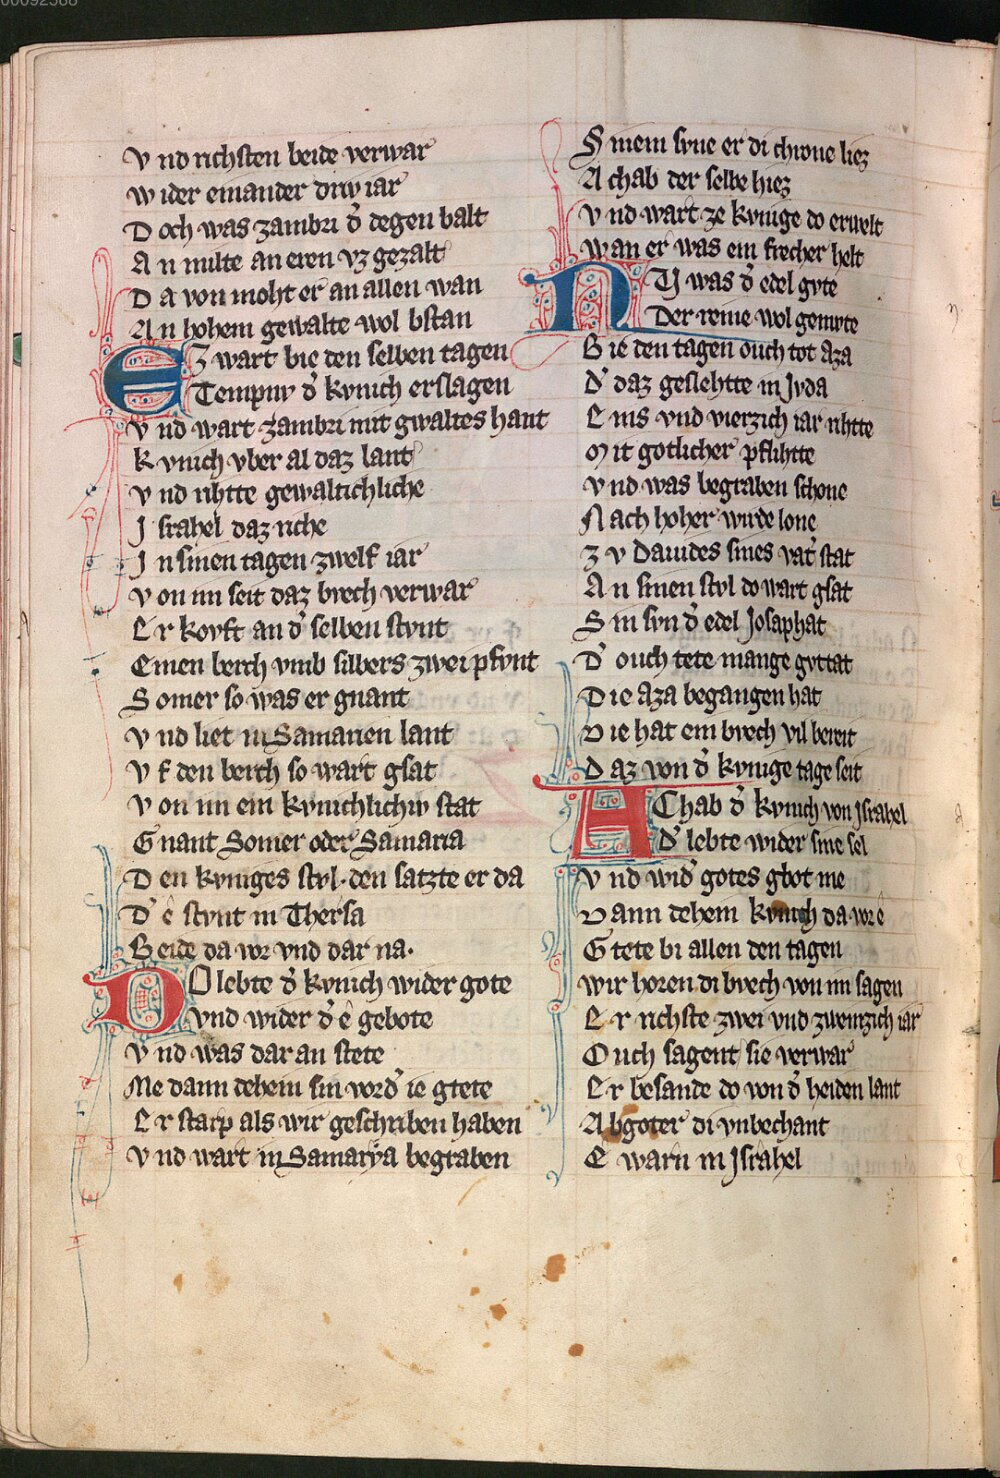 00092588
V nd richsten beide verwar
w ider einander driv iar
D och was zambri d̕ degen balt
A n milte an eren vz gezalt
D a von moht er an allen wan
A n hohem gewalte wol bstan
E Z wart bie den selben tagen
Tempny d̕ kvnich erslagen
V nd wart zambri mit gwaltes hant
K vnich vber al daz lant
V nd rihtte gewaltichliche
J srahel daz riche
J n sinen tagen zwelf iar
V on im seit daz bvech verwar
E r kovft an d̕ selben stvnt
Einen berch vmb silbers zwei pfvnt
S omer so was er gnant
V nd liet in Samarien lant
V f den berch so wart gsat
V on im ein kvnichlichiv stat
G nant Somer oder Samaria
D en kvniges stvl · den satzte er da
D̕ ê stvnt in Thersa
B eide da vor vnd dar na ·
D O lebte d̕ kvnich wider gote
vnd wider d̕ ê gebote
V nd was dar an stete
Me dann dehein sin vord̕ ie gtete
E r starp als wir geschriben haben
V nd wart in Samarya begraben
S inem svne er di chrone liez
A chab der selbe hiez
V nd wart ze kvnige do erwelt
wan er was ein frecher helt
N V was d̕ edel gvte
Der reine wol gemvte
B ie den tagen ouch tot aza
D̕ daz geslehtte in Jvda
E ins vnd vierzich iar rihtte
M it gotlicher pflihtte
V nd was begraben schone
N ach hoher wirde lone
Z v Dauides sines vat̕ stat
A n sinen stvl do wart gsat
S in svn d̕ edel Josaphat
D̕ ouch tete mange gvttat
D ie aza begangen hat
D ie hat ein bvech vil bereit
D az von d̕ kvnige tage seit
A Chab d̕ kvnich von Jsrahel
D̕ lebte wider sine sel
V nd wid̕ gotes gbot me
D ann dehein kvnich da vor ê
G tete bi allen den tagen
wir horen di bvech von im sagen
E r richste zwei vnd zweinzich iar
O uch sagent sie verwar
E r besande do von d̕ heiden lant
A bgoter di vnbechant
E warn in Jsrahel